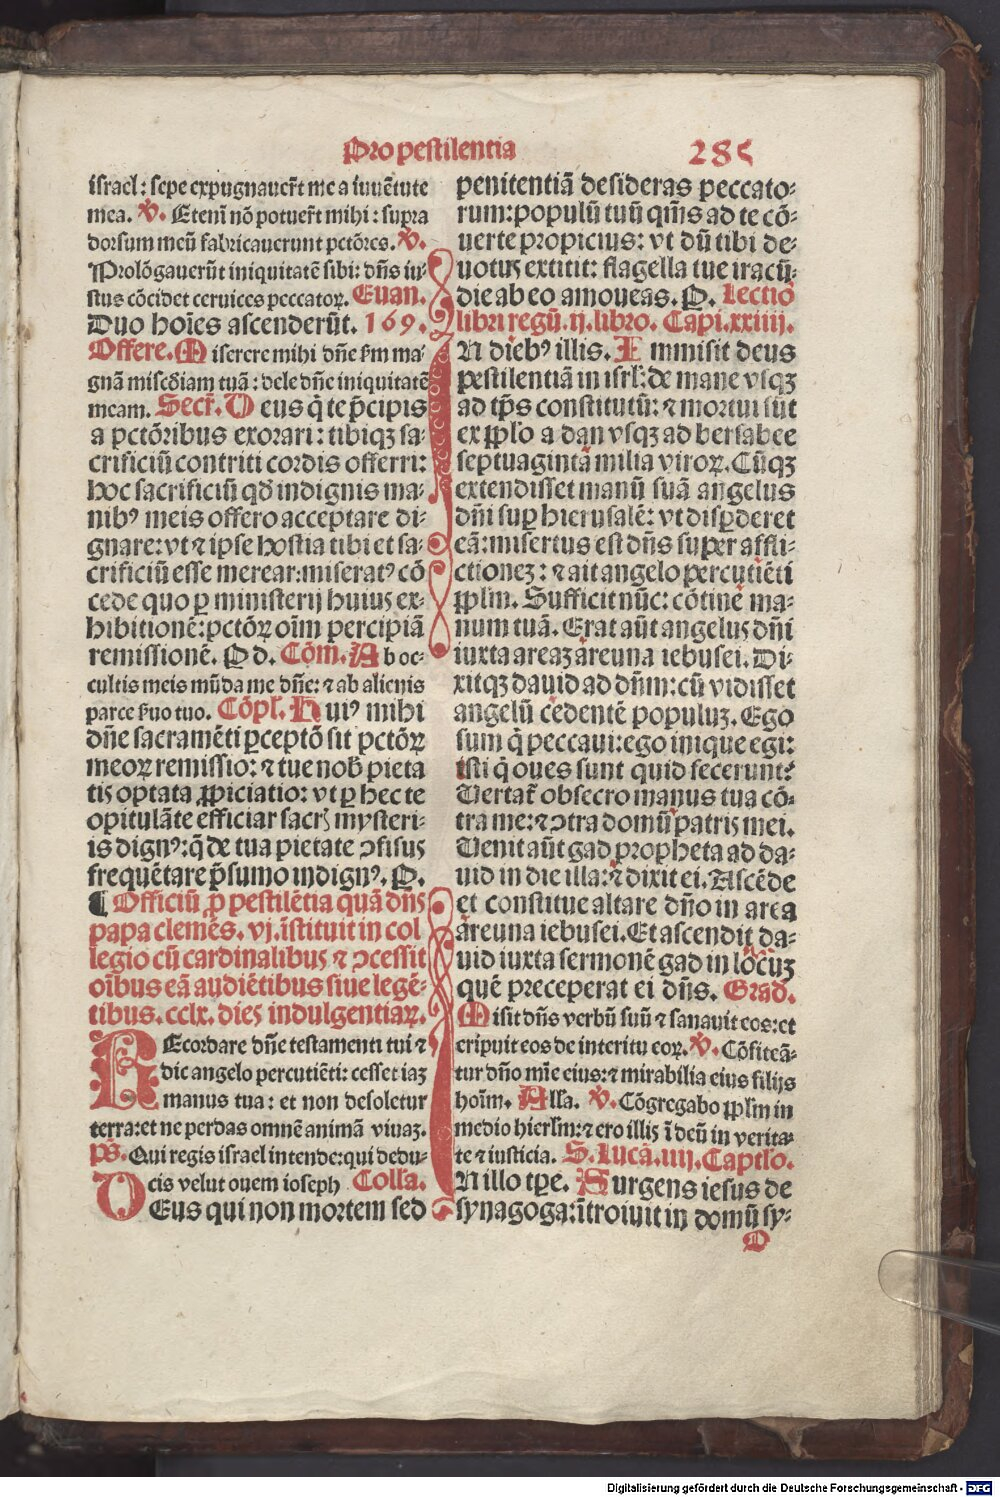 Pro pestilentia 285
israel: sepe expugnauerūt me a iuuētute
mea. ℣. Etenī nō potuerūt mihi: supra
dorsum meū fabricauerunt pctōres. ℣.
Prolōgauerūt iniquitatē sibi: dn̄s iu-
stus cōcidet ceruices peccatoꝝ. Euan.
Duo hoīes ascenderūt. 169.
Offere. Miserere mihi dn̄e ẜm ma-
gnā miẜc̄diam tuā: dele dn̄e iniquitatē
meam. Secr̄. Deus q̄ te p̄cipis
a pctōribus exorari: tibiqꝫ sa-
crificiū contriti cordis offerri:
hoc sacrificiū qd̄ indignis ma-
nibꝰ meis offero acceptare di-
gnare: vt ⁊ ipse hostia tibi et sa-
crificiū esse merear: miseratꝰ cō
cede quo ꝑ ministerij huius ex-
hibitionē: pctōꝝ oīm percipiā
remissionē. P d. Cōm. Ab oc-
cultis meis mūda me dn̄e: ⁊ ab alienis
parce ẜuo tuo. Cōpl̄. Huiꝰ mihi
dn̄e sacramēti ꝑceptō sit pctōꝝ
meoꝝ remissio: ⁊ tue nob̄ pieta
tis optata ꝓpiciatio: vt ꝑ hec te
opitulāte efficiar sacris mysteri-
is dignꝰ: q̄ de tua pietate ↄfisus
frequētare p̄sumo indignꝰ. P.
¶ Officiū ꝓ pestilētia quā dn̄s
papa clemēs. vj. īstituit in col
legio cū cardinalibus ⁊ ↄcessit
oībus eā audiētibus siue legē-
tibus. cclx. dies indulgentiaꝝ.
REcordare dn̄e testamenti tui ⁊
dic angelo percutiēti: cesset iaꝫ
manus tua: et non desoletur
terra: et ne perdas omnē animā viuaꝫ.
p̄s. Qui regis israel intende: qui dedu-
cis velut ouem ioseph Coll̄a.
DEus qui non mortem sed
penitentiā desideras peccato-
rum: populū tuū qm̄s ad te cō-
uerte propicius: vt dū tibi de-
uotus extitit: flagella tue iracū-
die ab eo amoueas. P. Lectio
libri regū. ij. libro. Capi. xxiiij.
IN diebꝰ illis. Immisit deus
pestilentiā in isrl̄: de mane vsqꝫ
ad tp̄s constitutū: ⁊ mortui sūt
ex ꝓpl̄o a dan vsqꝫ ad bersabee
septuaginta milia viroꝝ. Cūqꝫ
extendisset manū suā angelus
dn̄i suꝑ hierusalē: vt disꝑderet
eā: misertus est dn̄s super affli-
ctioneꝫ: ⁊ ait angelo percutiēti
ꝓplm̄. Sufficit nūc: cōtine ma-
num tuā. Erat aūt angelus dn̄i
iuxta areaꝫ areuna iebusei. Di-
xitqꝫ dauid ad dn̄m: cū vidisset
angelū cedentē populuꝫ. Ego
sum q̄ peccaui: ego inique egi:
isti q̄ oues sunt quid fecerunt?
Vertat̄ obsecro manus tua cō-
tra me: ⁊ ↄtra domū patris mei.
Venit aūt gad propheta ad da-
uid in die illa: ⁊ dixit ei. Ascēde
et constitue altare dn̄o in area
areuna iebusei. Et ascendit da-
uid iuxta sermonē gad in locuꝫ
quē preceperat ei dn̄s. Grad.
Misit dn̄s verbū suū ⁊ sanauit eos: et
eripuit eos de interitu eoꝝ. ℣. Cōfiteā-
tur dn̄o mīe eius: ⁊ mirabilia eius filijs
hoīm. All̄a. ℣. Cōgregabo ꝓplm̄ in
medio hierlm̄: ⁊ ero illis ī deū in verita-
te ⁊ iusticia. S. Lucā. iiij. Captl̄o.
IN illo tꝑe. Surgens iesus de
synagoga: ītroiuit in domū sy-
D
Digitalisierung gefördert durch die Deutsche Forschungsgemeinschaft - DFG